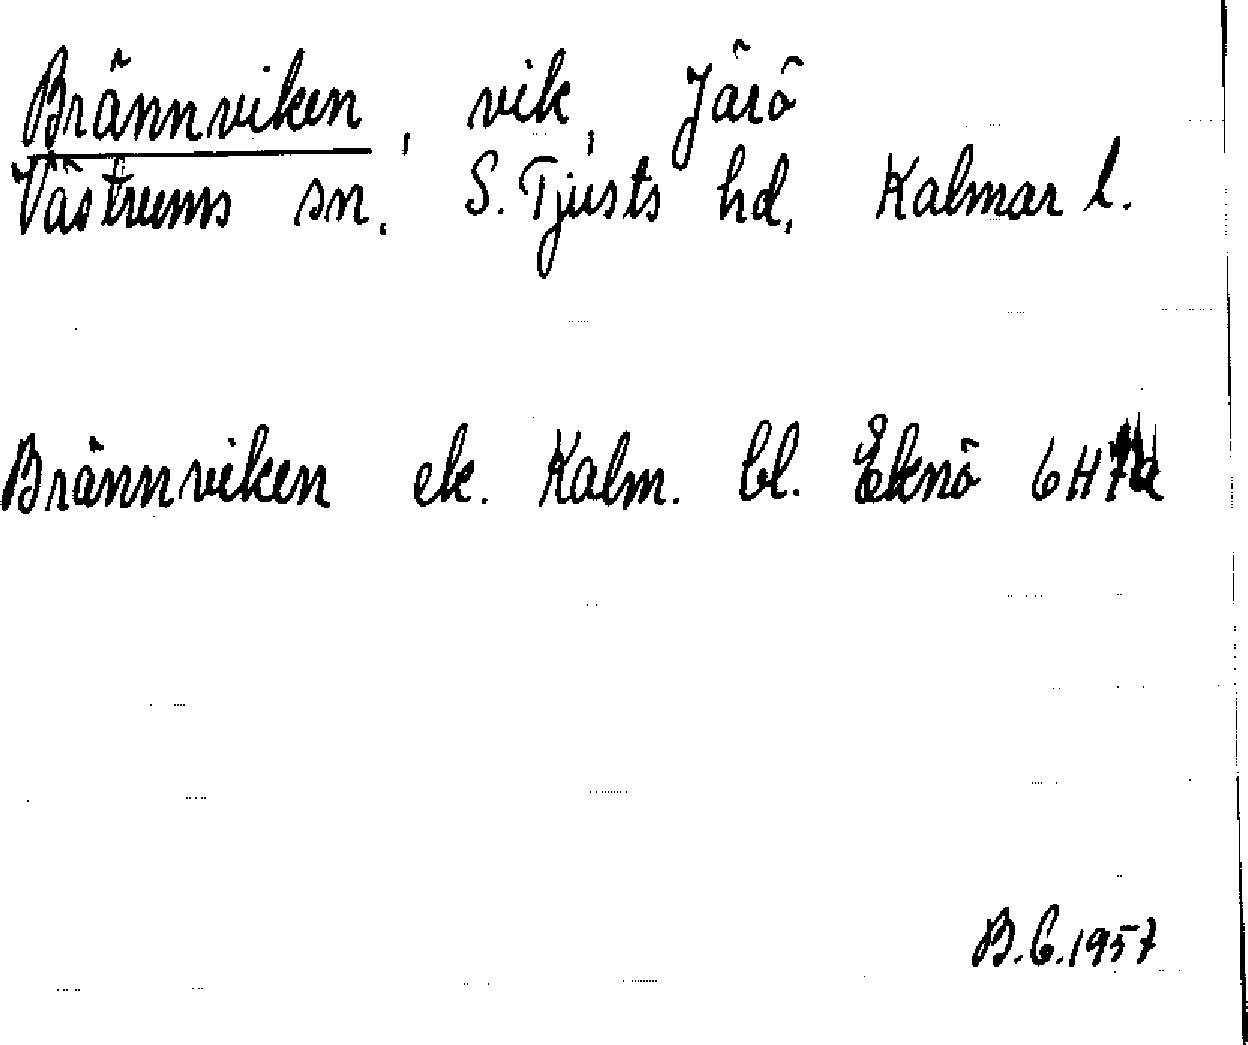 Brännviken, vik, Järö
Västrums sn. S. Tjusts hd. Kalmar l.
Brännviken ek. Kalm. bl. Eknö
B.G. 1957